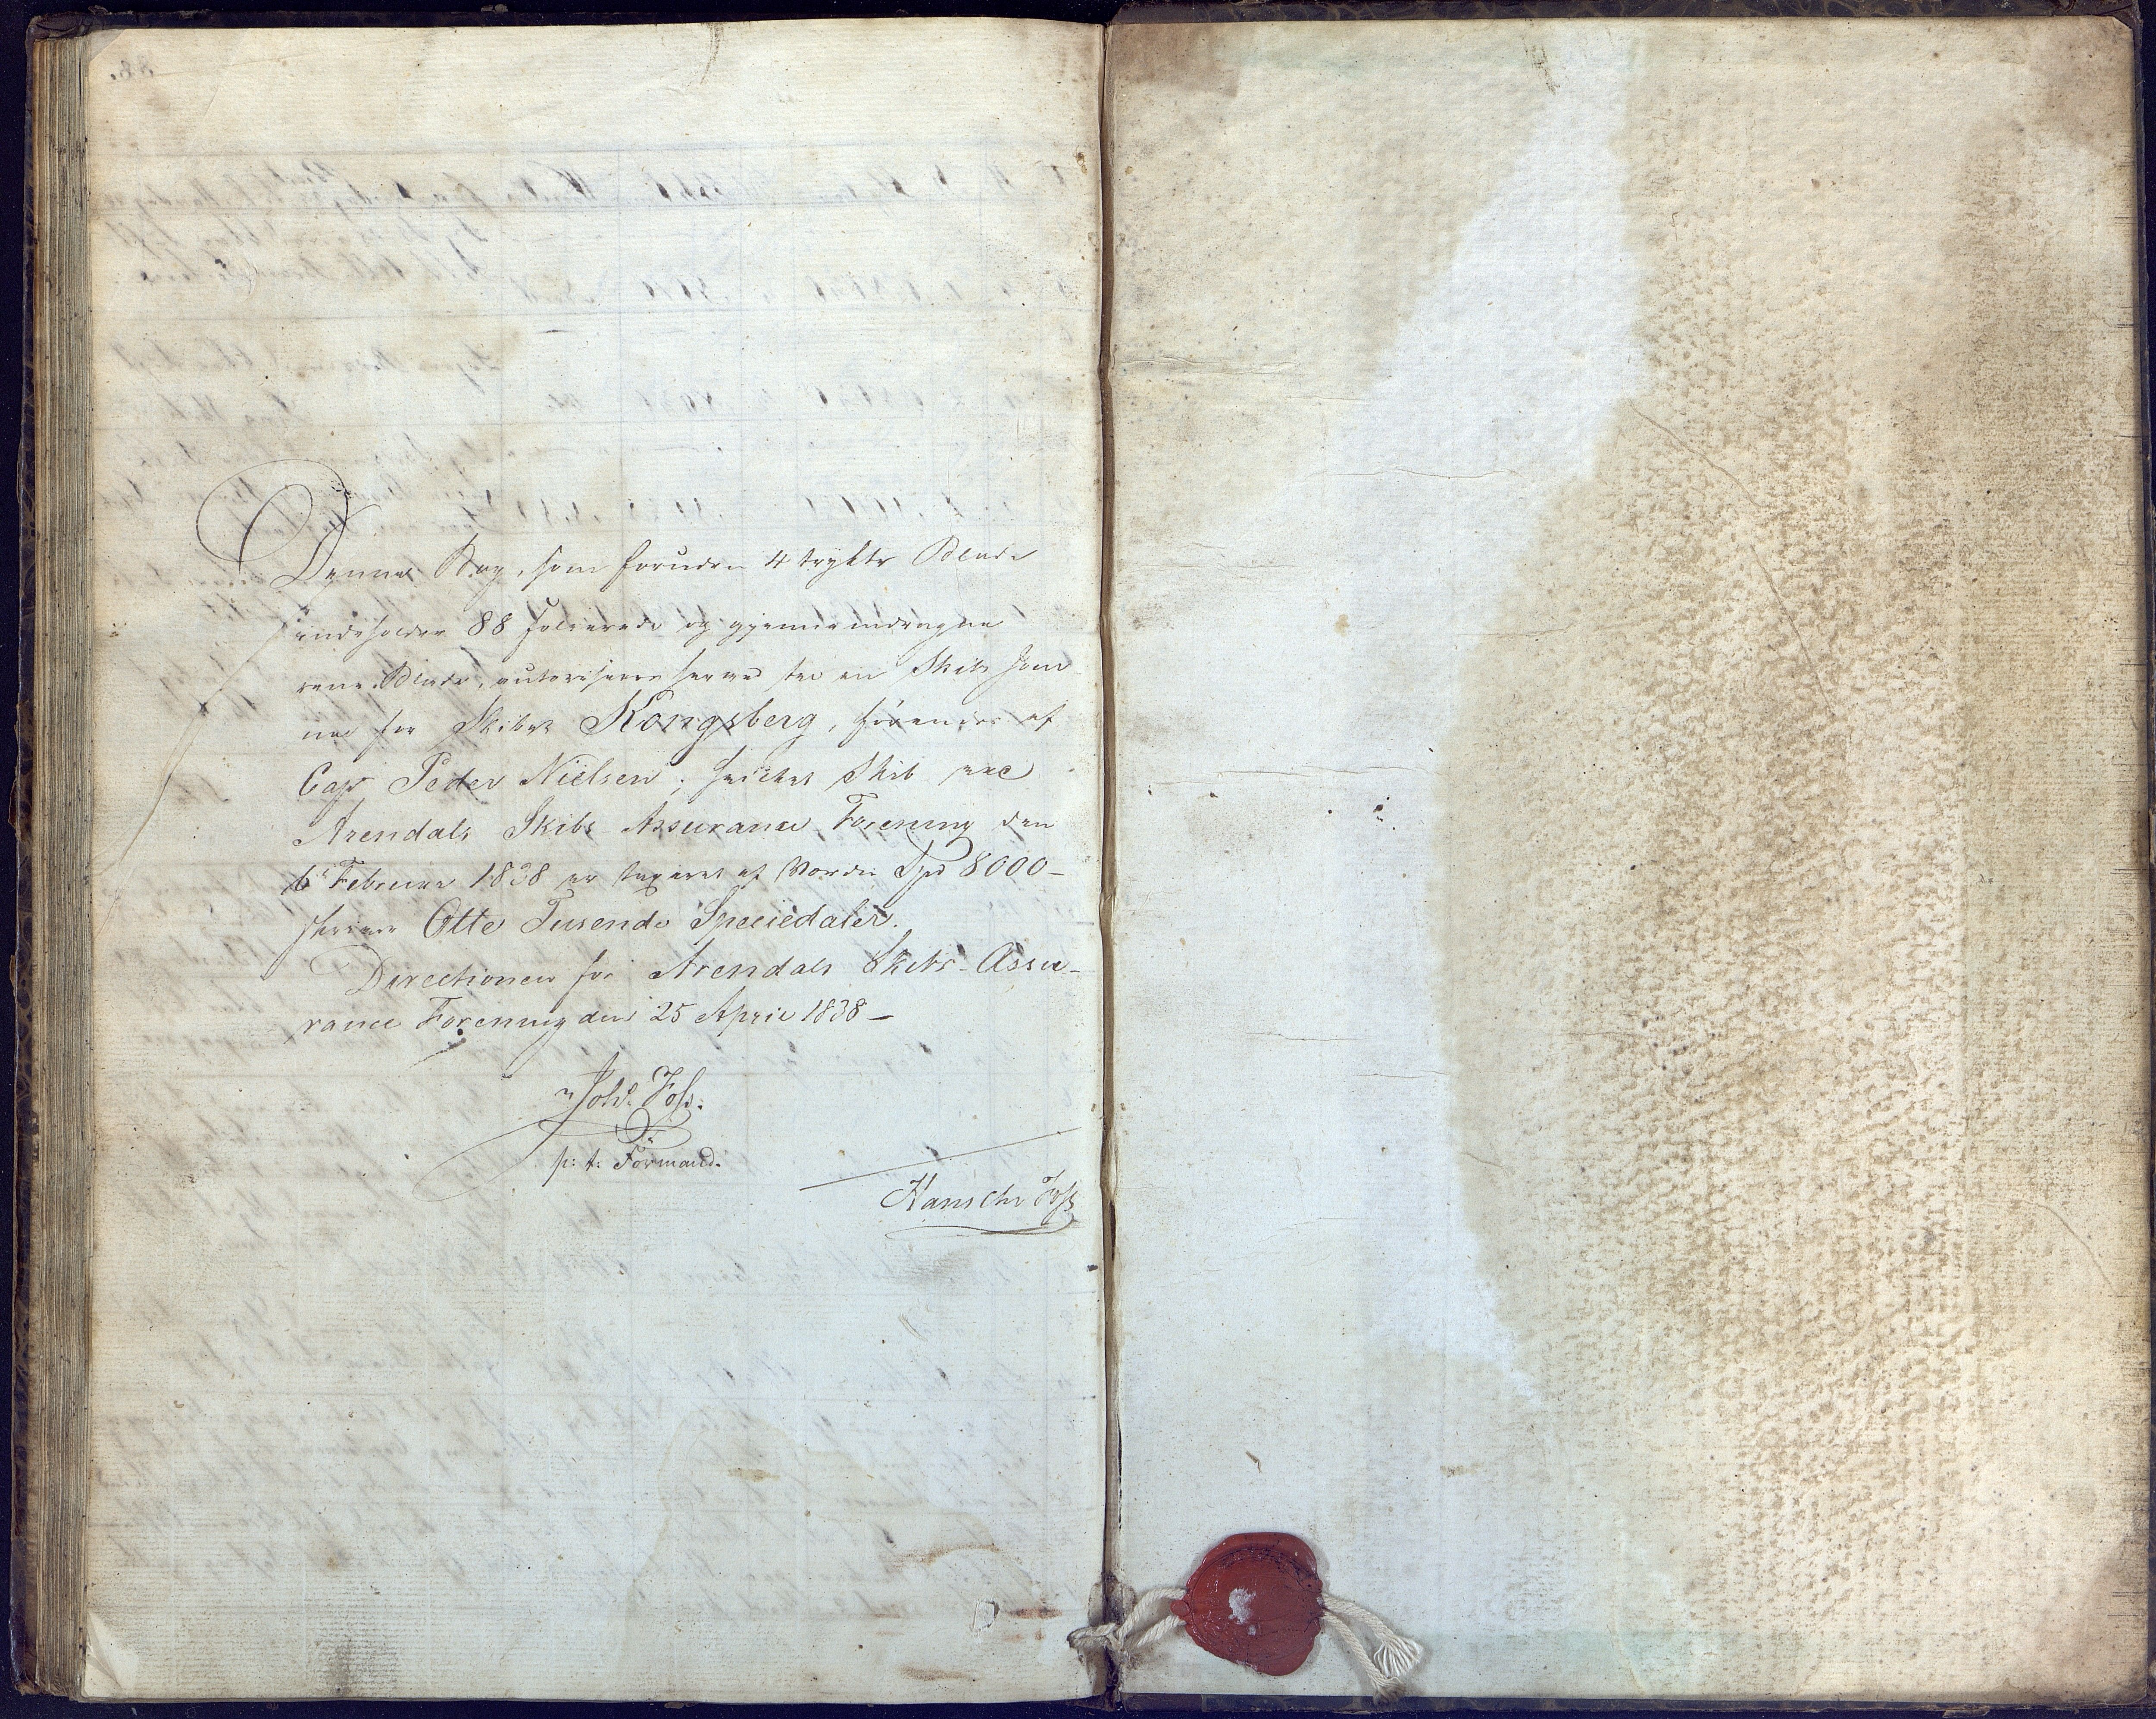 Denne Bog, som foruden 4 trykte Blade
indeholder 88 Folierede og gjennemdragne
rene Blade, autoriseres herved til en Skibs Jour
nal for Skibet Kongsberg, førendes af
Capt Peder Nielsen; hvilket Skib ved
Arendals Skibs Assurance Forening den
6 Februar 1838 er taxeret af Værdi Spd 8000 -
skriver Otte Tusende Speciedaler.
Directionen for Arendals Skibs-Assu-
rance Forening den 25 April 1838 -
Joh: Foss.
p: t: Formand.
Hans Chr Foss